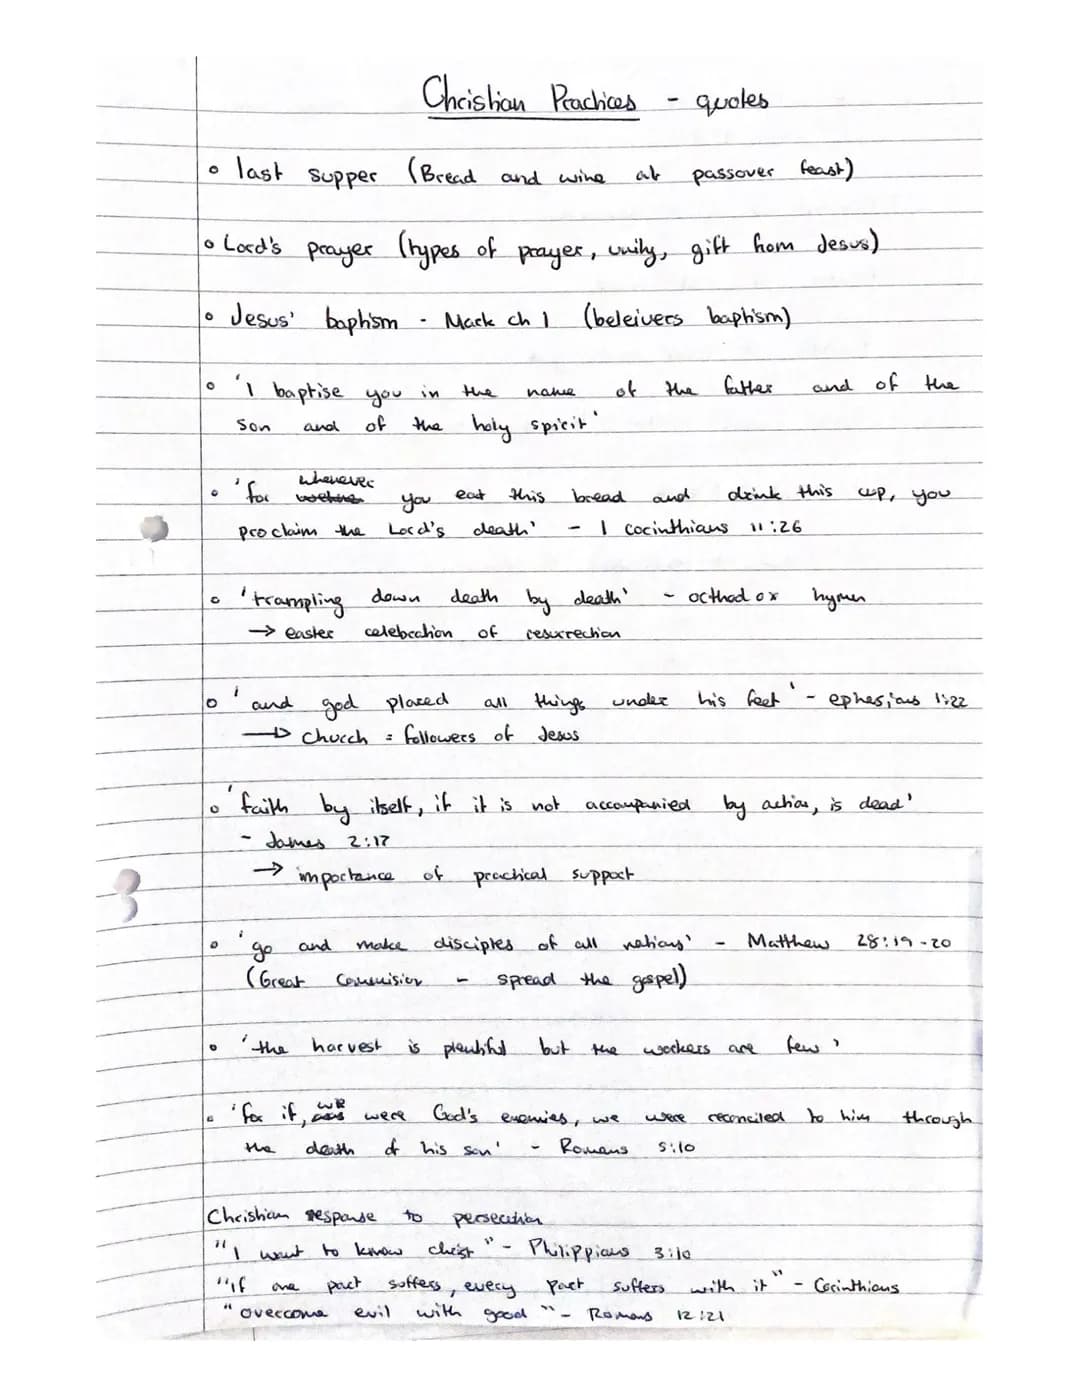 Christian Practices - quotes
• last supper (Bread and wine at passover feast)
• Lord's prayer (types of prayer, unity, gift from Jesus)
• Jesus' baptism - Mark ch 1 (beleivers baptism)
• 'I baptise you in the name of the father and of the
son and of the holy spirit'
whenever
• 'for you eat this bread and drink this cup, you
proclaim the Lord's death' - 1 Corinthians 11:26
• 'trampling down death by death' - orthodox hymn
→ easter celebration of resurrection
• 'and god placed all things under his feet' - ephesians 1:22
→ church = followers of Jesus
• 'faith by itself, if it is not accompanied by action, is dead'
- James 2:17
→ importance of practical support
• 'go and make disciples of all nations' - Matthew 28:19-20
(Great Commision - spread the gospel)
• 'the harvest is plentiful but the workers are few'
we
• 'for if, were God's enemies, we were reconciled to him through
the death of his son' - Romans 5:10
Christian response to persecution
"I want to know christ" - Philippians 3:10
"if one part suffers, every part suffers with it" - Corinthians
"overcome evil with good" - Romans 12:21